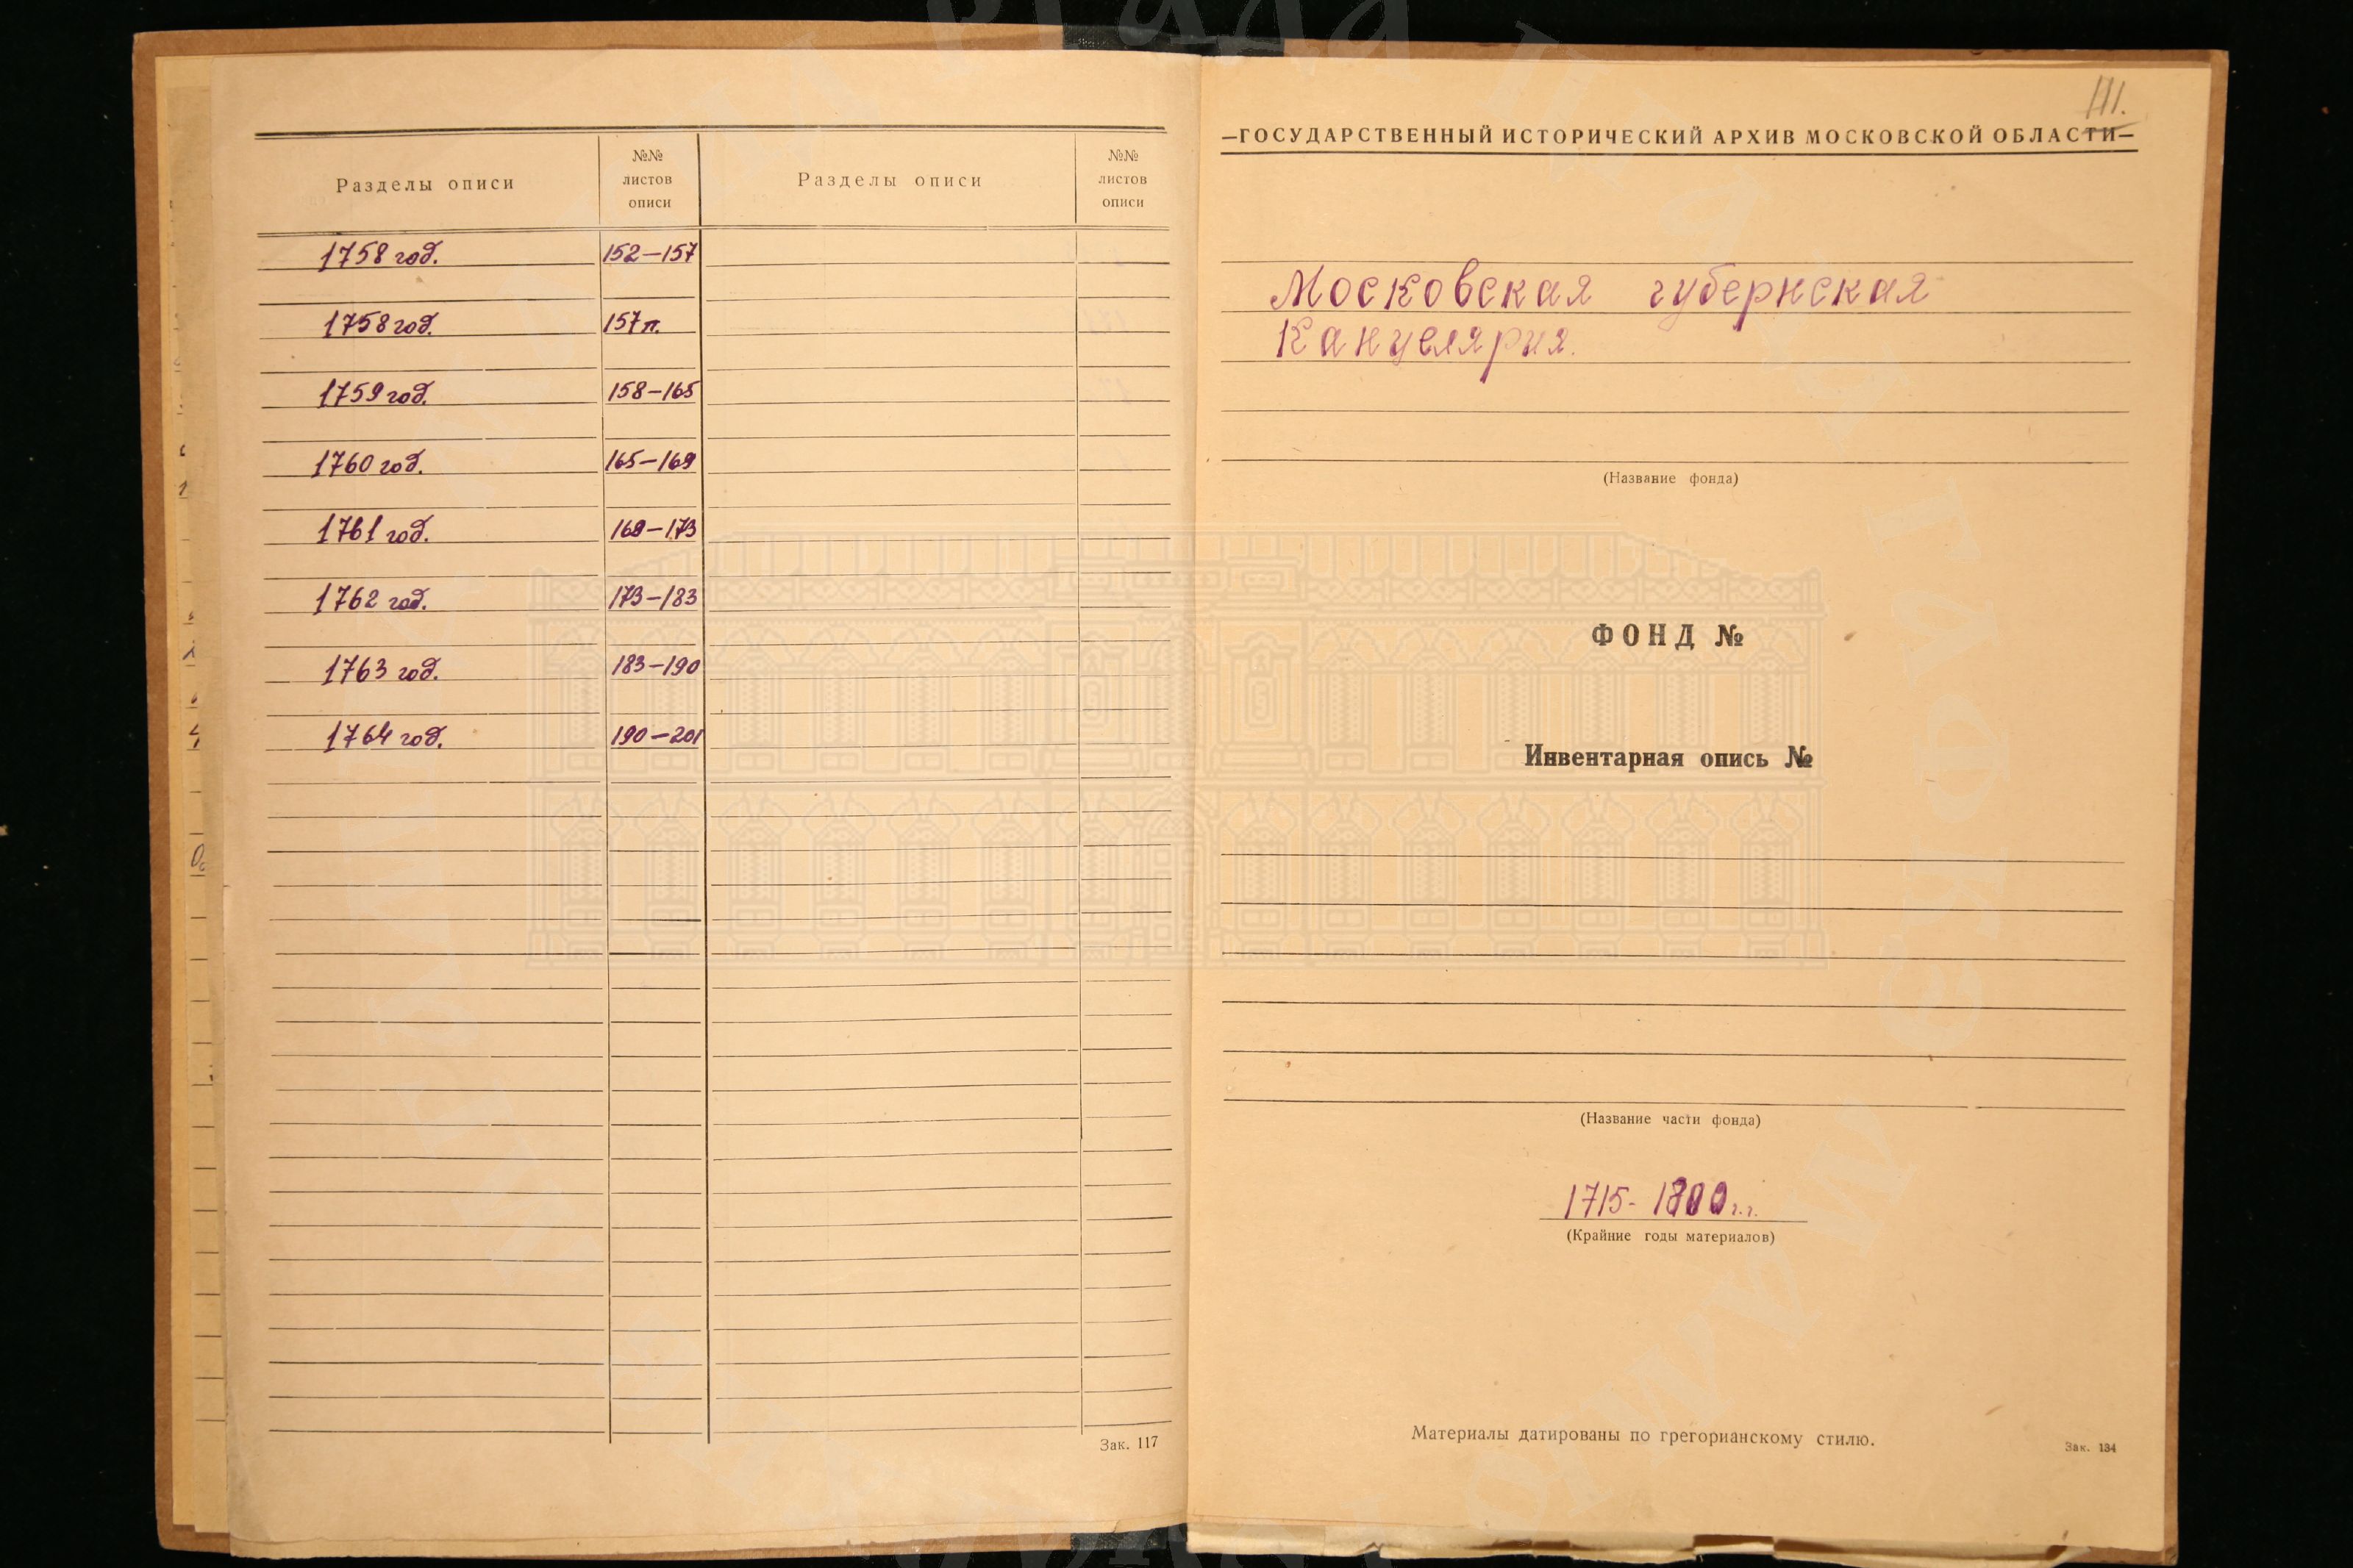 Разделы описи
№№
листов
описи
Разделы описи
№№
листов
описи
1758 год. 152–157
1758 год. 157 п.
1759 год. 158–165
1760 год. 165–169
1761 год. 169–173
1762 год. 173–183
1763 год. 183–190
1764 год. 190–201
Зак. 117
III.
ГОСУДАРСТВЕННЫЙ ИСТОРИЧЕСКИЙ АРХИВ МОСКОВСКОЙ ОБЛАСТИ
Московская губернская
Канцелярия.
(Название фонда)
ФОНД №
Инвентарная опись №
(Название части фонда)
1715- 1800 г.г.
(Крайние годы материалов)
Материалы датированы по грегорианскому стилю.
Зак. 134